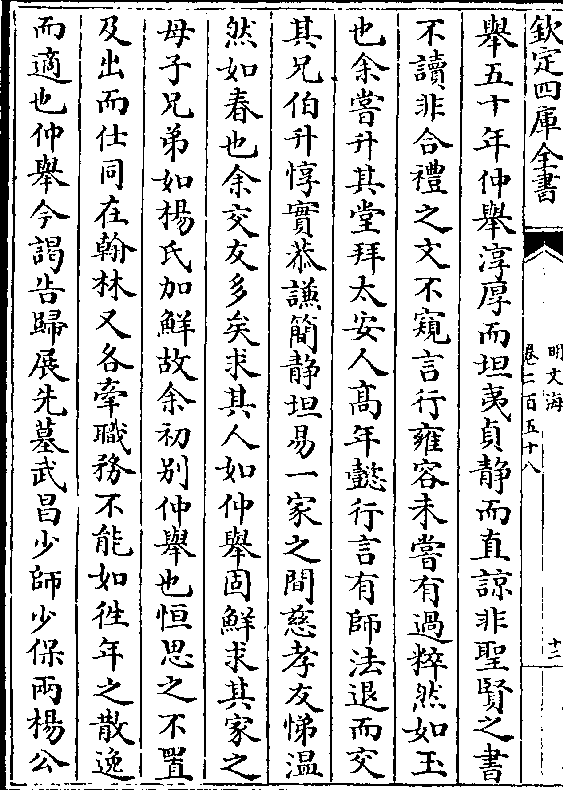 欽定四庫全書
明文海
卷二百五十八
十二
舉五十年仲舉淳厚而坦夷貞静而直諒非聖賢之書
不讀非合禮之文不窺言行雍容未嘗有過粹然如玉
也余嘗升其堂拜太安人髙年懿行言有師法退而交
其兄伯升惇實恭謙簡静坦易一家之間慈孝友悌温
然如春也余交友多矣求其人如仲舉固鮮求其家之
母子兄弟如楊氏加鮮故余初别仲舉也恒思之不置
及出而仕同在翰林又各牽職務不能如徃年之散逸
而適也仲舉今謁告歸展先墓武昌少師少保兩楊公